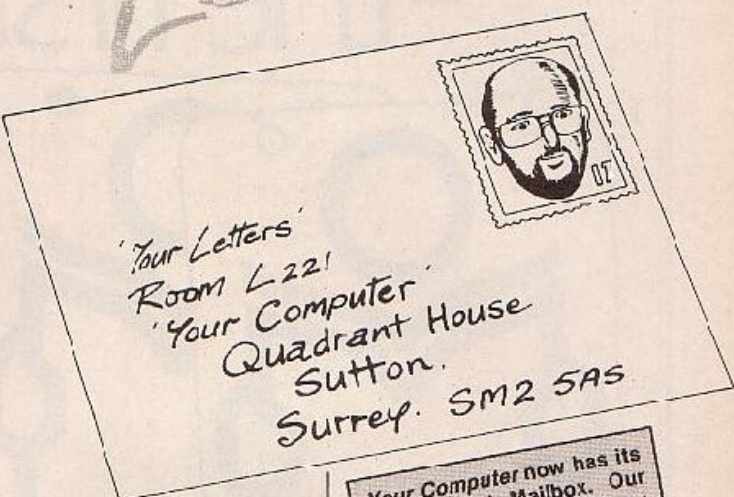 'Your Letters'
Room L221
'Your Computer'
Quadrant House
Sutton.
Surrey. SM2 5AS
Your Computer now has its
Mailbox. Our